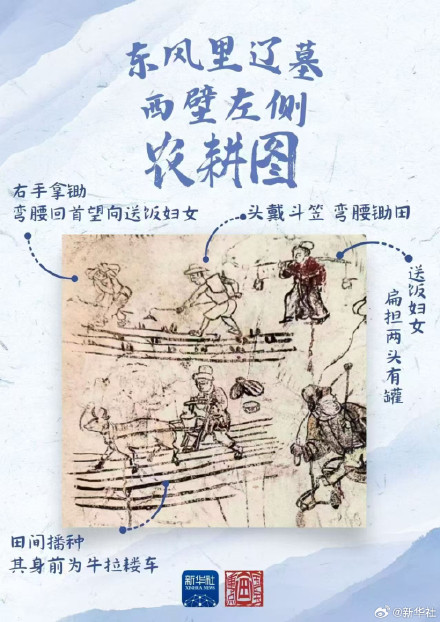 东风里辽墓
西壁左侧
农耕图
右手拿锄
弯腰回首望向送饭妇女
头戴斗笠 弯腰锄田
送饭妇女
扁担两头有罐
田间播种
其身前为牛拉耧车
新华社
XINHUA NEWS
@新华社